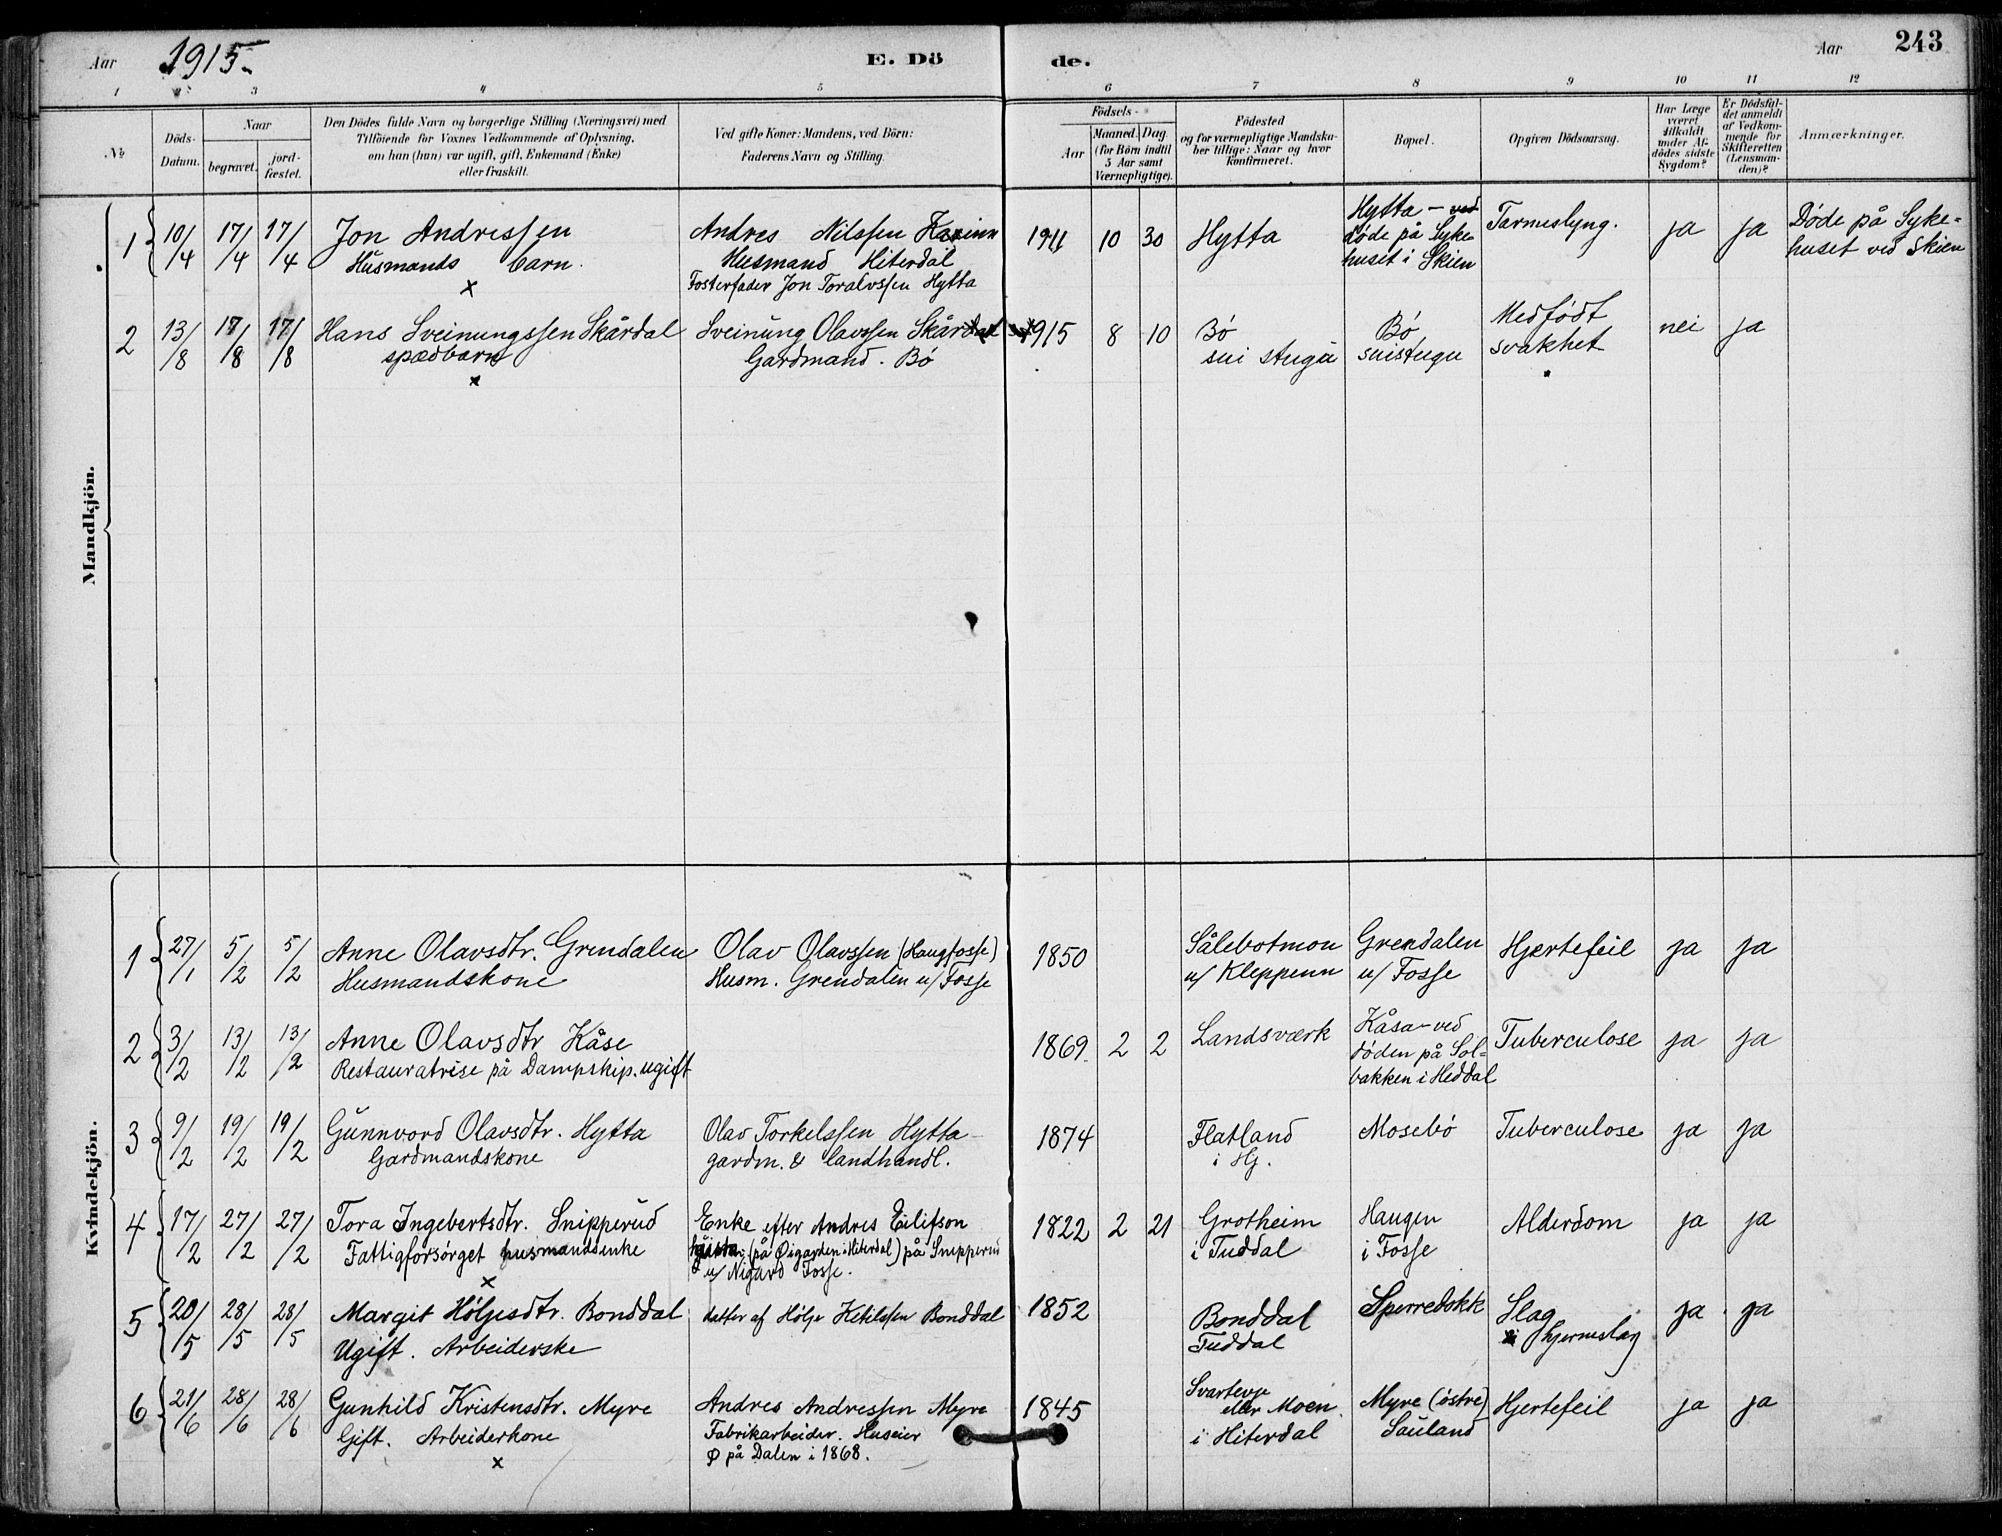 Aar 1915.
E. Döde.
Aar 243
1 2 3 4 5 6 7 8 9 10 11 12
No
Döds-Datum.
Naar
begravet.
jord-fæstet.
Den Dödes fulde Navn og borgerlige Stilling (Næringsvei) med
Tilföiende for Voxnes Vedkommende af Oplysning,
om han (hun) var ugift, gift, Enkemand (Enke)
eller fraskilt.
Ved gifte Koner: Mandens, ved Börn:
Faderens Navn og Stilling.
Födsels-
Aar
Maaned. Dag.
(for Börn indtil
5 Aar samt
Værnepligtige).
Födested
og for værnepligtige Mandska-
ber tillige: Naar og hvor
konfirmeret.
Bopæl.
Opgiven Dödsaarsag.
Har Læge
været
tilkaldt
under Af-
dödes sidste
Sygdom?
Er Dödsfal-
det anmeldt
af Vedkom-
mende for
Skifteretten
(Lensman-
den)?
Anmærkninger.
Mandkjön.
1 10/4 17/4 17/4
Jon Andressen
Husmands barn.
x
Andres Nilssen
Husmand Hiterdal
Fosterfader Jon Toralvssen Hytta
1911 10 30
Hytta
Hytta - ved
døde på Syke
huset i Skien
Tarmeslyng.
ja ja
Døde på Syke-
huset ved Skien
2 13/8 17/8 17/8
Hans Sveinungssen Skårdal
spædbarn
x
Sveinung Olavssen Skårdal
Gardmand. Bø
1915 8 10
Bø
sui stugu
Bø
suistugu
Medfødt
svakhet
nei ja
Kvindekjön.
1 27/1 5/2 5/2
Anne Olavsdtr. Grendalen
Husmandskone
Olav Olavssen (Haugfosse)
Husm. Grendalen u/ Fosse
1850
Sålebotmon
u/ Kleppenn
Grendalen
u/ Fosse
Hjertefeil
ja ja
2 3/2 13/2 13/2
Anne Olavsdtr Kåse
Restauratrise på Dampskip. ugift
1869. 2 2
Landsværk
Kåsa - ved
døden på Sol-
bakken i Heddal
Tuberculose
ja ja
3 9/2 19/2 19/2
Gunnvord Olavsdtr. Hytta
Gardmandskone
Olav Torkelssen Hytta
gardm. & landhandl.
1874
Flatland
i Hj.
Mosebø
Tuberculose
ja ja
4 17/2 27/2 27/2
Tora Ingebertsdtr. Snipperud
Fattigforsørget husmandsenke
x
Enke efter Andres Eilifson
(på Øigarden i Hiterdal) på Snipperud
u/ Nigard Fosse.
1822 2 21
Grotheim
i Tuddal
Haugen
i Fosse
Alderdom
ja ja
5 20/5 28/5 28/5
Margit Hølgesdtr. Bonddal
Ugift. Arbeiderske
datter af Hølje Ketilssen Bonddal
1852
Bonddal
Tuddal
Sperredokk
Slag
hjerneslag
ja ja
6 21/6 28/6 28/6
Gunhild Kristensdtr. Myre
Gift. Arbeiderkone
x
Andres Andressen Myre
Fabrikarbeider. Huseier
Ø på Dalen i 1868.
1845
eller Moen
i Hiterdal
Myre (østre)
Sauland
Hjertefeil
ja ja